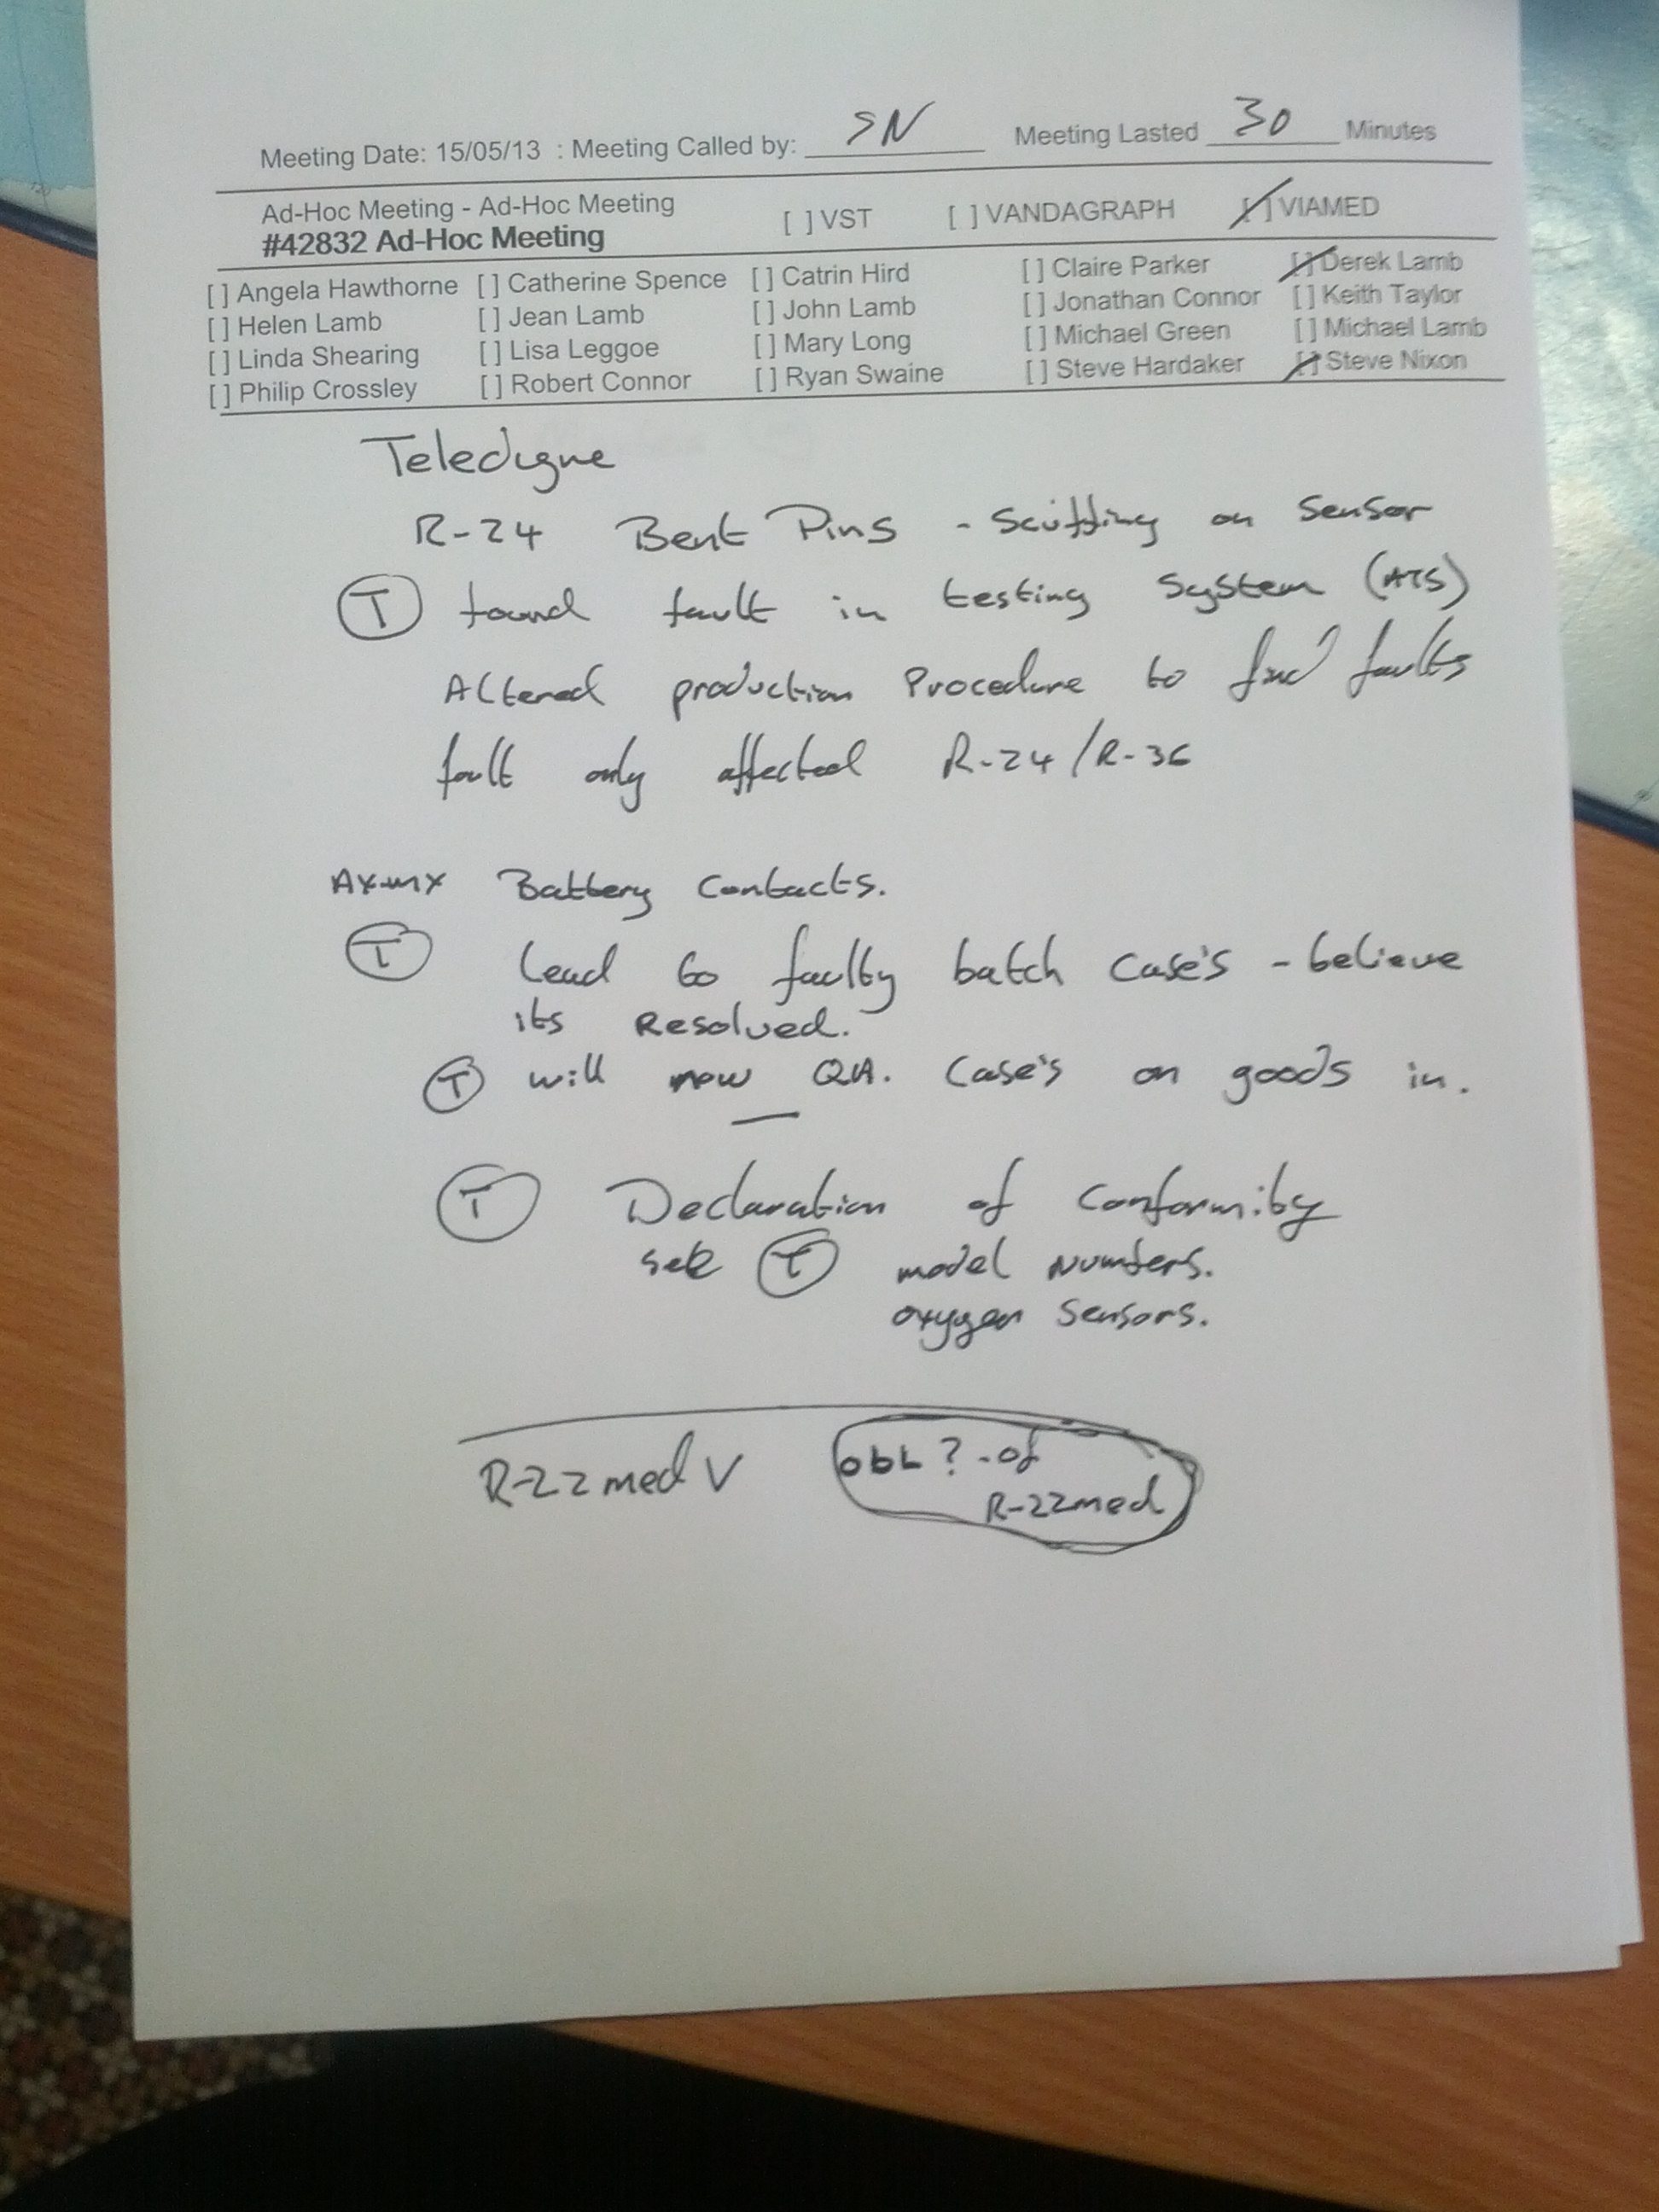 Meeting Date: 15/05/13 : Meeting Called by: SN Meeting Lasted 30 Minutes
Ad-Hoc Meeting - Ad-Hoc Meeting [ ] VST [ ] VANDAGRAPH [/] VIAMED
#42832 Ad-Hoc Meeting
[ ] Angela Hawthorne [ ] Catherine Spence [ ] Catrin Hird [ ] Claire Parker [/] Derek Lamb
[ ] Helen Lamb [ ] Jean Lamb [ ] John Lamb [ ] Jonathan Connor [ ] Keith Taylor
[ ] Linda Shearing [ ] Lisa Leggoe [ ] Mary Long [ ] Michael Green [ ] Michael Lamb
[ ] Philip Crossley [ ] Robert Connor [ ] Ryan Swaine [ ] Steve Hardaker [/] Steve Nixon
Teledyne
R-24 Bent Pins - Scuffing on Sensor
T found fault in testing System (ATS)
Altered production Procedure to find faults
fault only affected R-24/R-36
Battery Contacts.
T Lead to faulty batch Case's - believe
its Resolved.
T will now QA. Case's on goods in.
T Declaration of Conformity
T model Numbers.
oxygen Sensors.
R-22med V ObL ? - of
R-22med